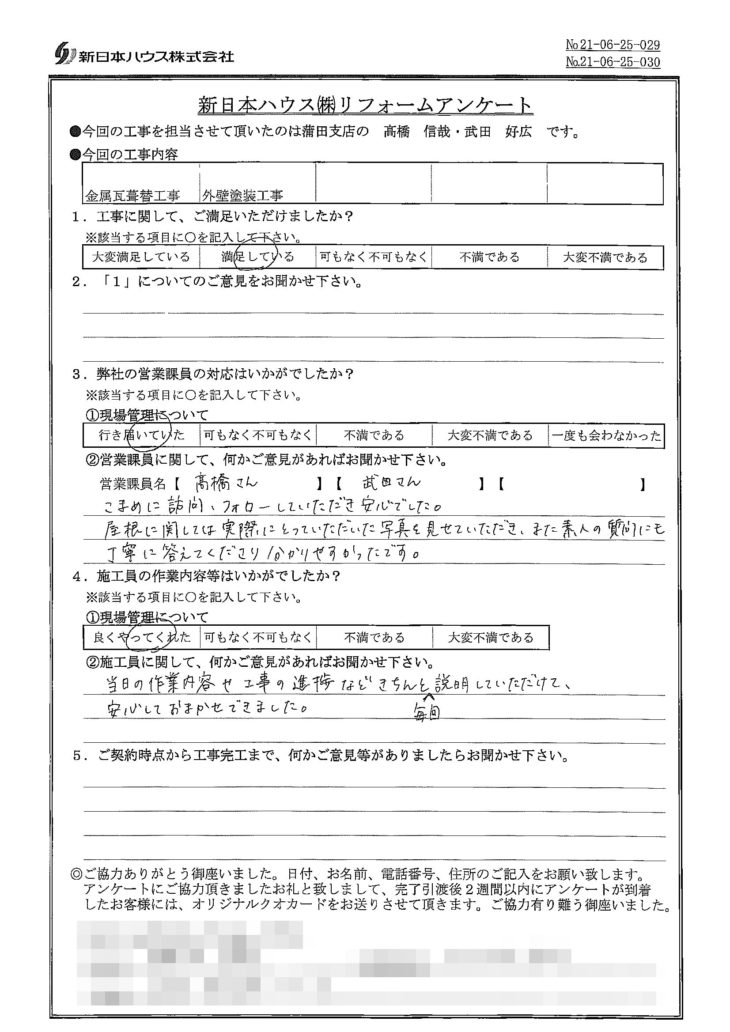 新日本ハウス株式会社
No.21-06-25-029
No.21-06-25-030
新日本ハウス㈱リフォームアンケート
●今回の工事を担当させて頂いたのは蒲田支店の 髙橋 信哉・武田 好広 です。
●今回の工事内容
金属瓦葺替工事 外壁塗装工事
1．工事に関して、ご満足いただけましたか？
※該当する項目に○を記入して下さい。
大変満足している 満足している 可もなく不可もなく 不満である 大変不満である
2．「1」についてのご意見をお聞かせ下さい。
3．弊社の営業課員の対応はいかがでしたか？
※該当する項目に○を記入して下さい。
①現場管理について
行き届いていた 可もなく不可もなく 不満である 大変不満である 一度も会わなかった
②営業課員に関して、何かご意見があればお聞かせ下さい。
営業課員名【 髙橋さん 】【 武田さん 】【 】
こまめに訪問、フォローしていただき安心でした。
屋根に関しては実際にとっていただいた写真を見せていただき、また素人の質問にも
丁寧に答えてくださり分かりやすかったです。
4．施工員の作業内容等はいかがでしたか？
※該当する項目に○を記入して下さい。
①現場管理について
良くやってくれた 可もなく不可もなく 不満である 大変不満である
②施工員に関して、何かご意見があればお聞かせ下さい。
当日の作業内容や工事の進捗などきちんと説明していただけて、
安心しておまかせできました。 毎回
5．ご契約時点から工事完工まで、何かご意見等がありましたらお聞かせ下さい。
◎ご協力ありがとう御座いました。日付、お名前、電話番号、住所のご記入をお願い致します。
アンケートにご協力頂きましたお礼と致しまして、完了引渡後２週間以内にアンケートが到着
したお客様には、オリジナルクオカードをお送りさせて頂きます。ご協力有り難う御座いました。